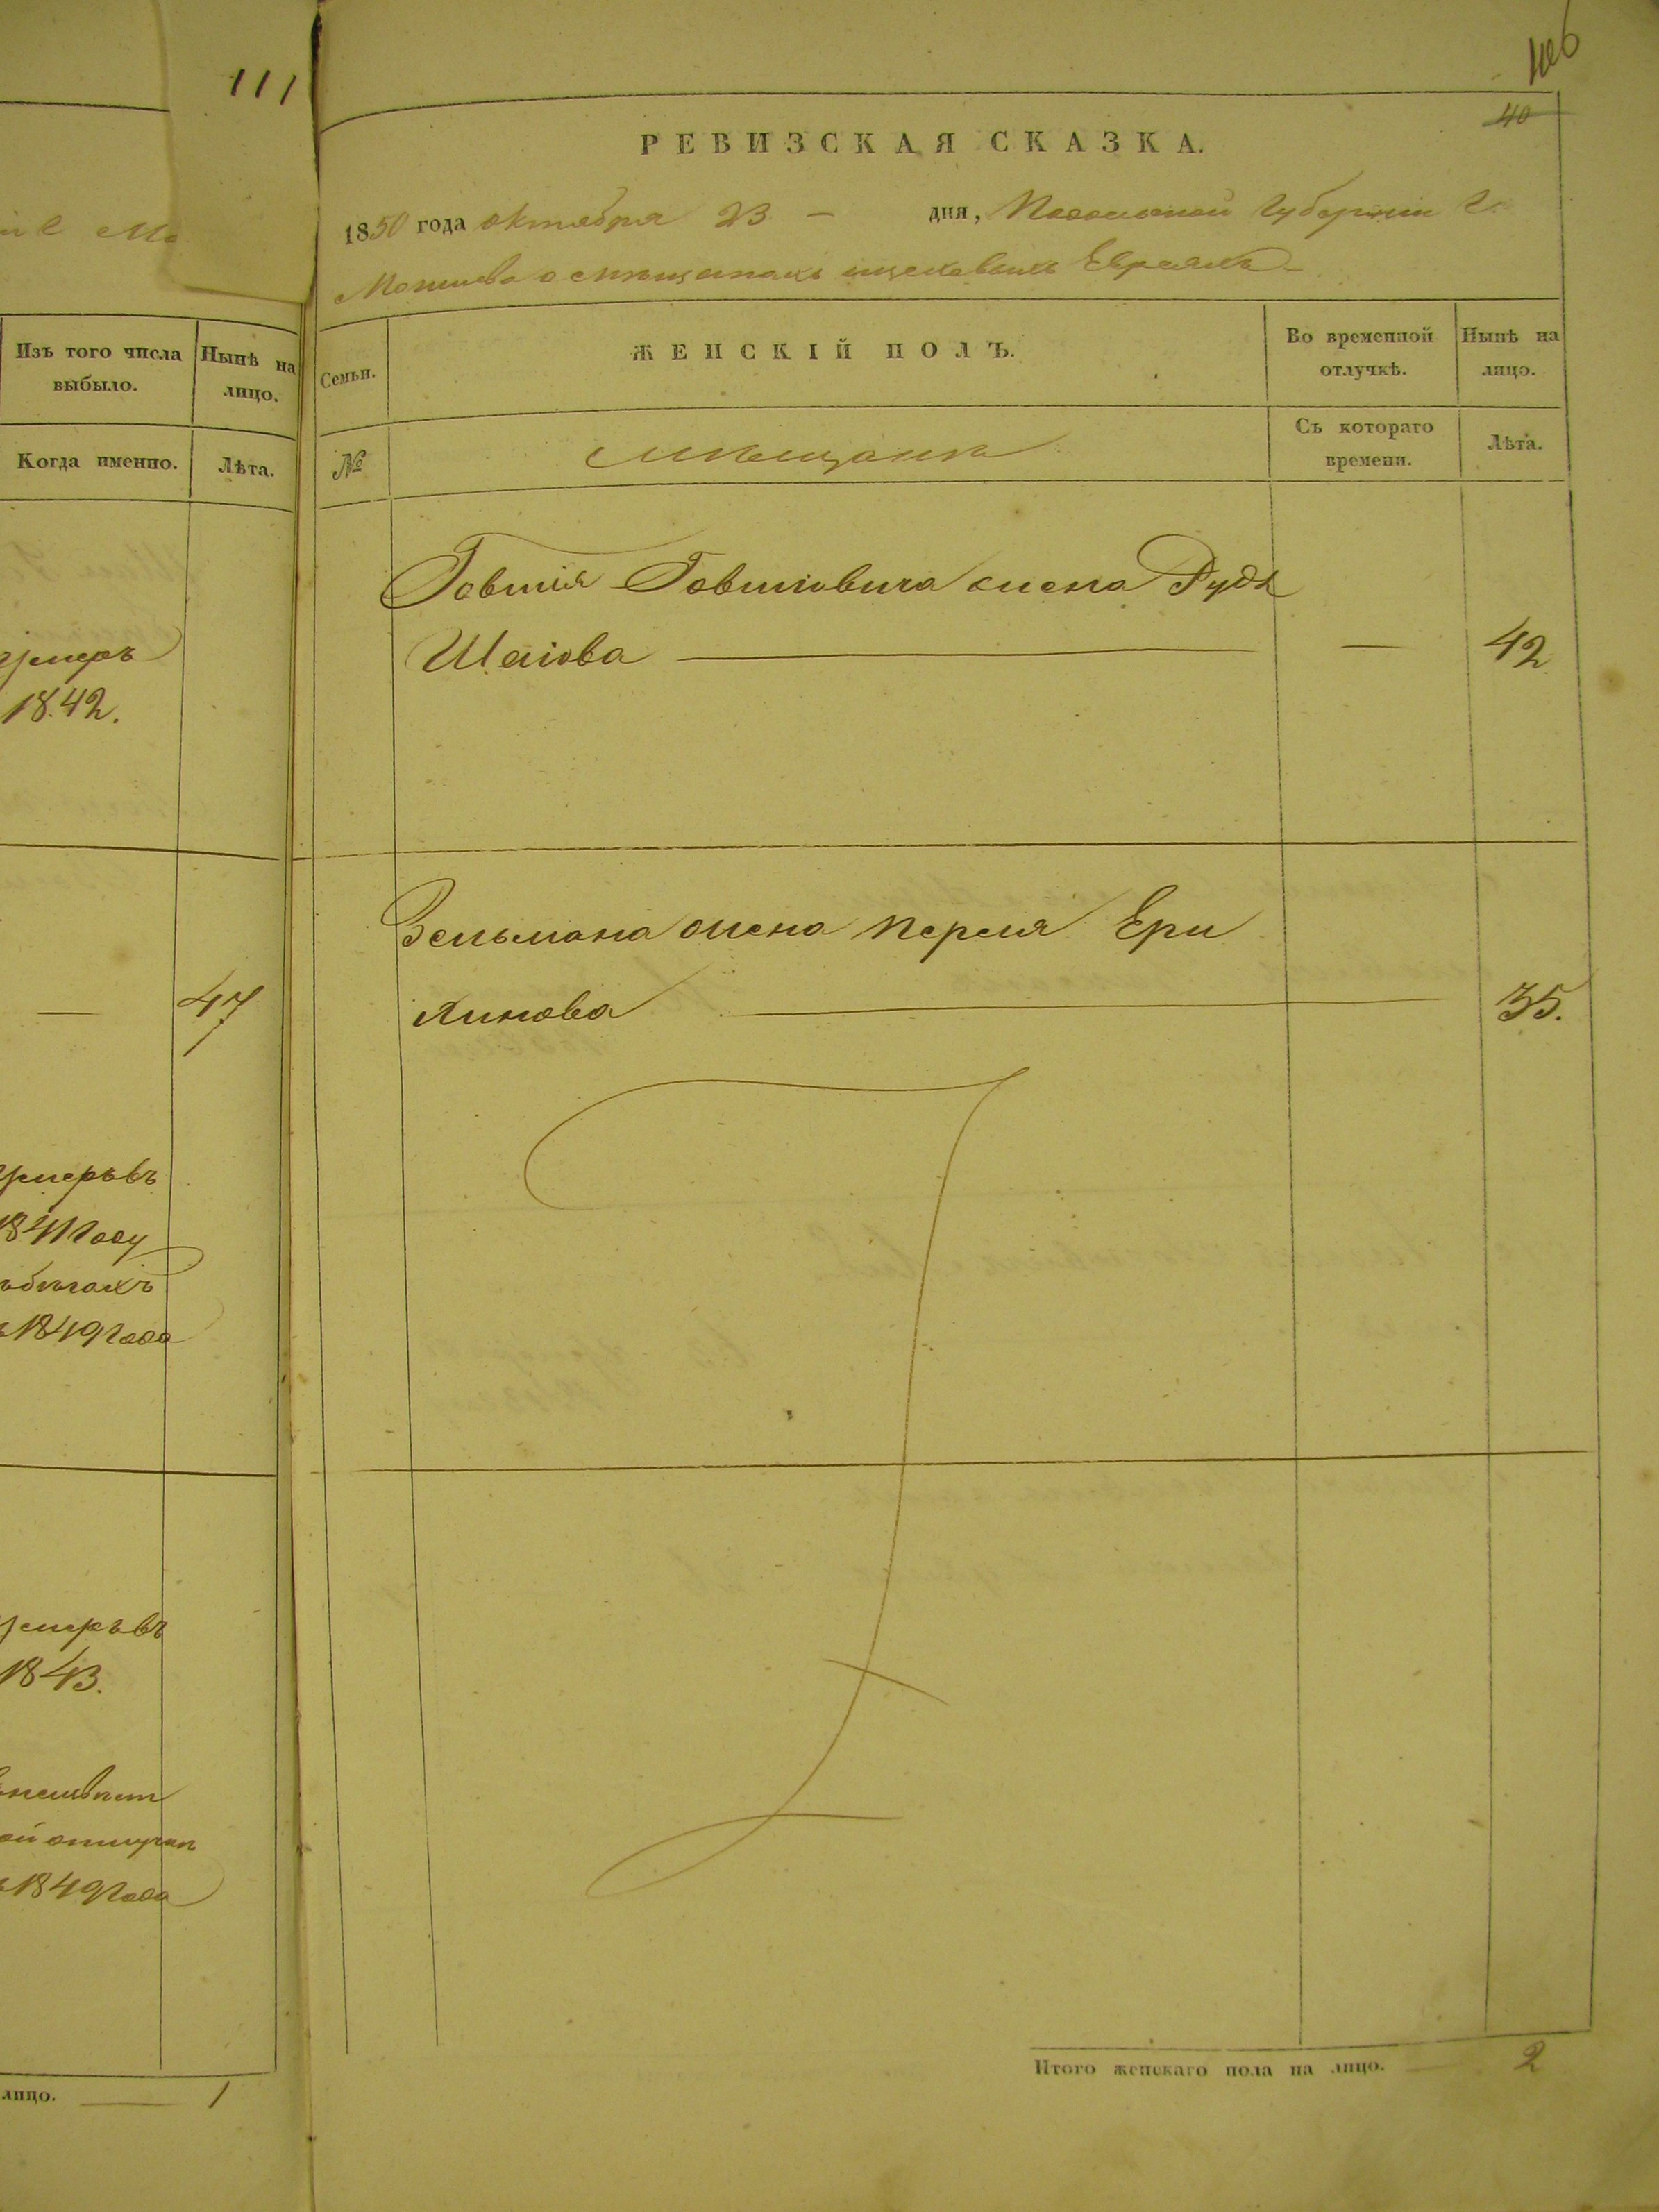 111
106
40
РЕВИЗСКАЯ СКАЗКА.
1850 года октября 23 — дня, Подольской Губернии Г.
Могилева о мѣщанахъ Евреяхъ
Изъ того числа выбыло.
Нынѣ на лицо.
Когда именно.
Лѣта.
умеръ
1842.
47
умеръ въ
1841 году
въ бѣгахъ
съ 1849 года
умеръ въ
1843.
съ 1849 года
лицо. 1
Семьи.
ЖЕНСКІЙ ПОЛЪ.
Во временной отлучкѣ.
Нынѣ на лицо.
№
Мѣщанъ
Съ котораго времени.
Лѣта.
Говшія Говшіовича жена Рудя
Шаіова — 42
Зельмана жена Перля Ери
химова 35.
Итого женскаго пола на лицо. 2